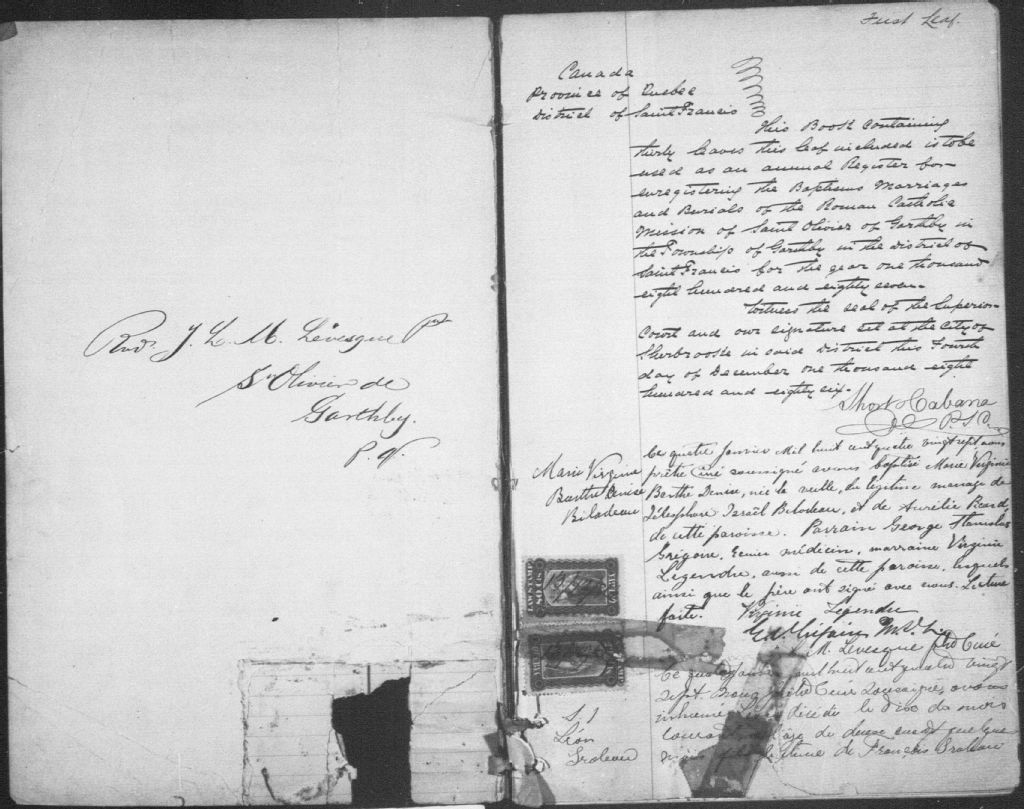 Revd. J. L. M. Lévesque Ptr
St Olivier de
Garthby.
P. Q.
First Leaf.
Canada
Province of Quebec
District of Saint Francis
This Book Containing
thirty leaves this leaf included is to be
used as an annual Register for
enregistering the Baptisms Marriages
and Burials of the Roman Catholic
Mission of Saint Olivier of Garthby in
the Township of Garthby in the District of
Saint Francis for the year one thousand
eight hundred and eighty seven.
Witness the seal of the Superior
Court and our signature set at the City of
Sherbrooke in said District this Fourth
day of December one thousand eight
hundred and eighty six.
Short & Cabana
P S C.
Marie Virginie
Barthe Denise
Bilodeau
Ce quatre Janvier Mil huit cent quatre vingt sept nous
prêtre Curé soussigné avons baptisé Marie Virginie
Barthe Denise, née la veille, du légitime mariage de
Télesphore Israël Bilodeau, et de Aurélie Picard,
de cette paroisse. Parrain George Stanislas
Grégoire, Ecuier médecin, marraine Virginie
Legendre, aussi de cette paroisse, lesquels
ainsi que le père ont signé avec nous. Lecture
faite.
Virginie Legendre
M. Levesque Ptre Curé
LAW STAMP
S. 1
Léon
Groleau
Ce huit cent quatre vingt
sept Nous prêtre Curé Soussigné, avons
inhumé décédé le du mois
courant de deux ans et quelque
de François Groleau